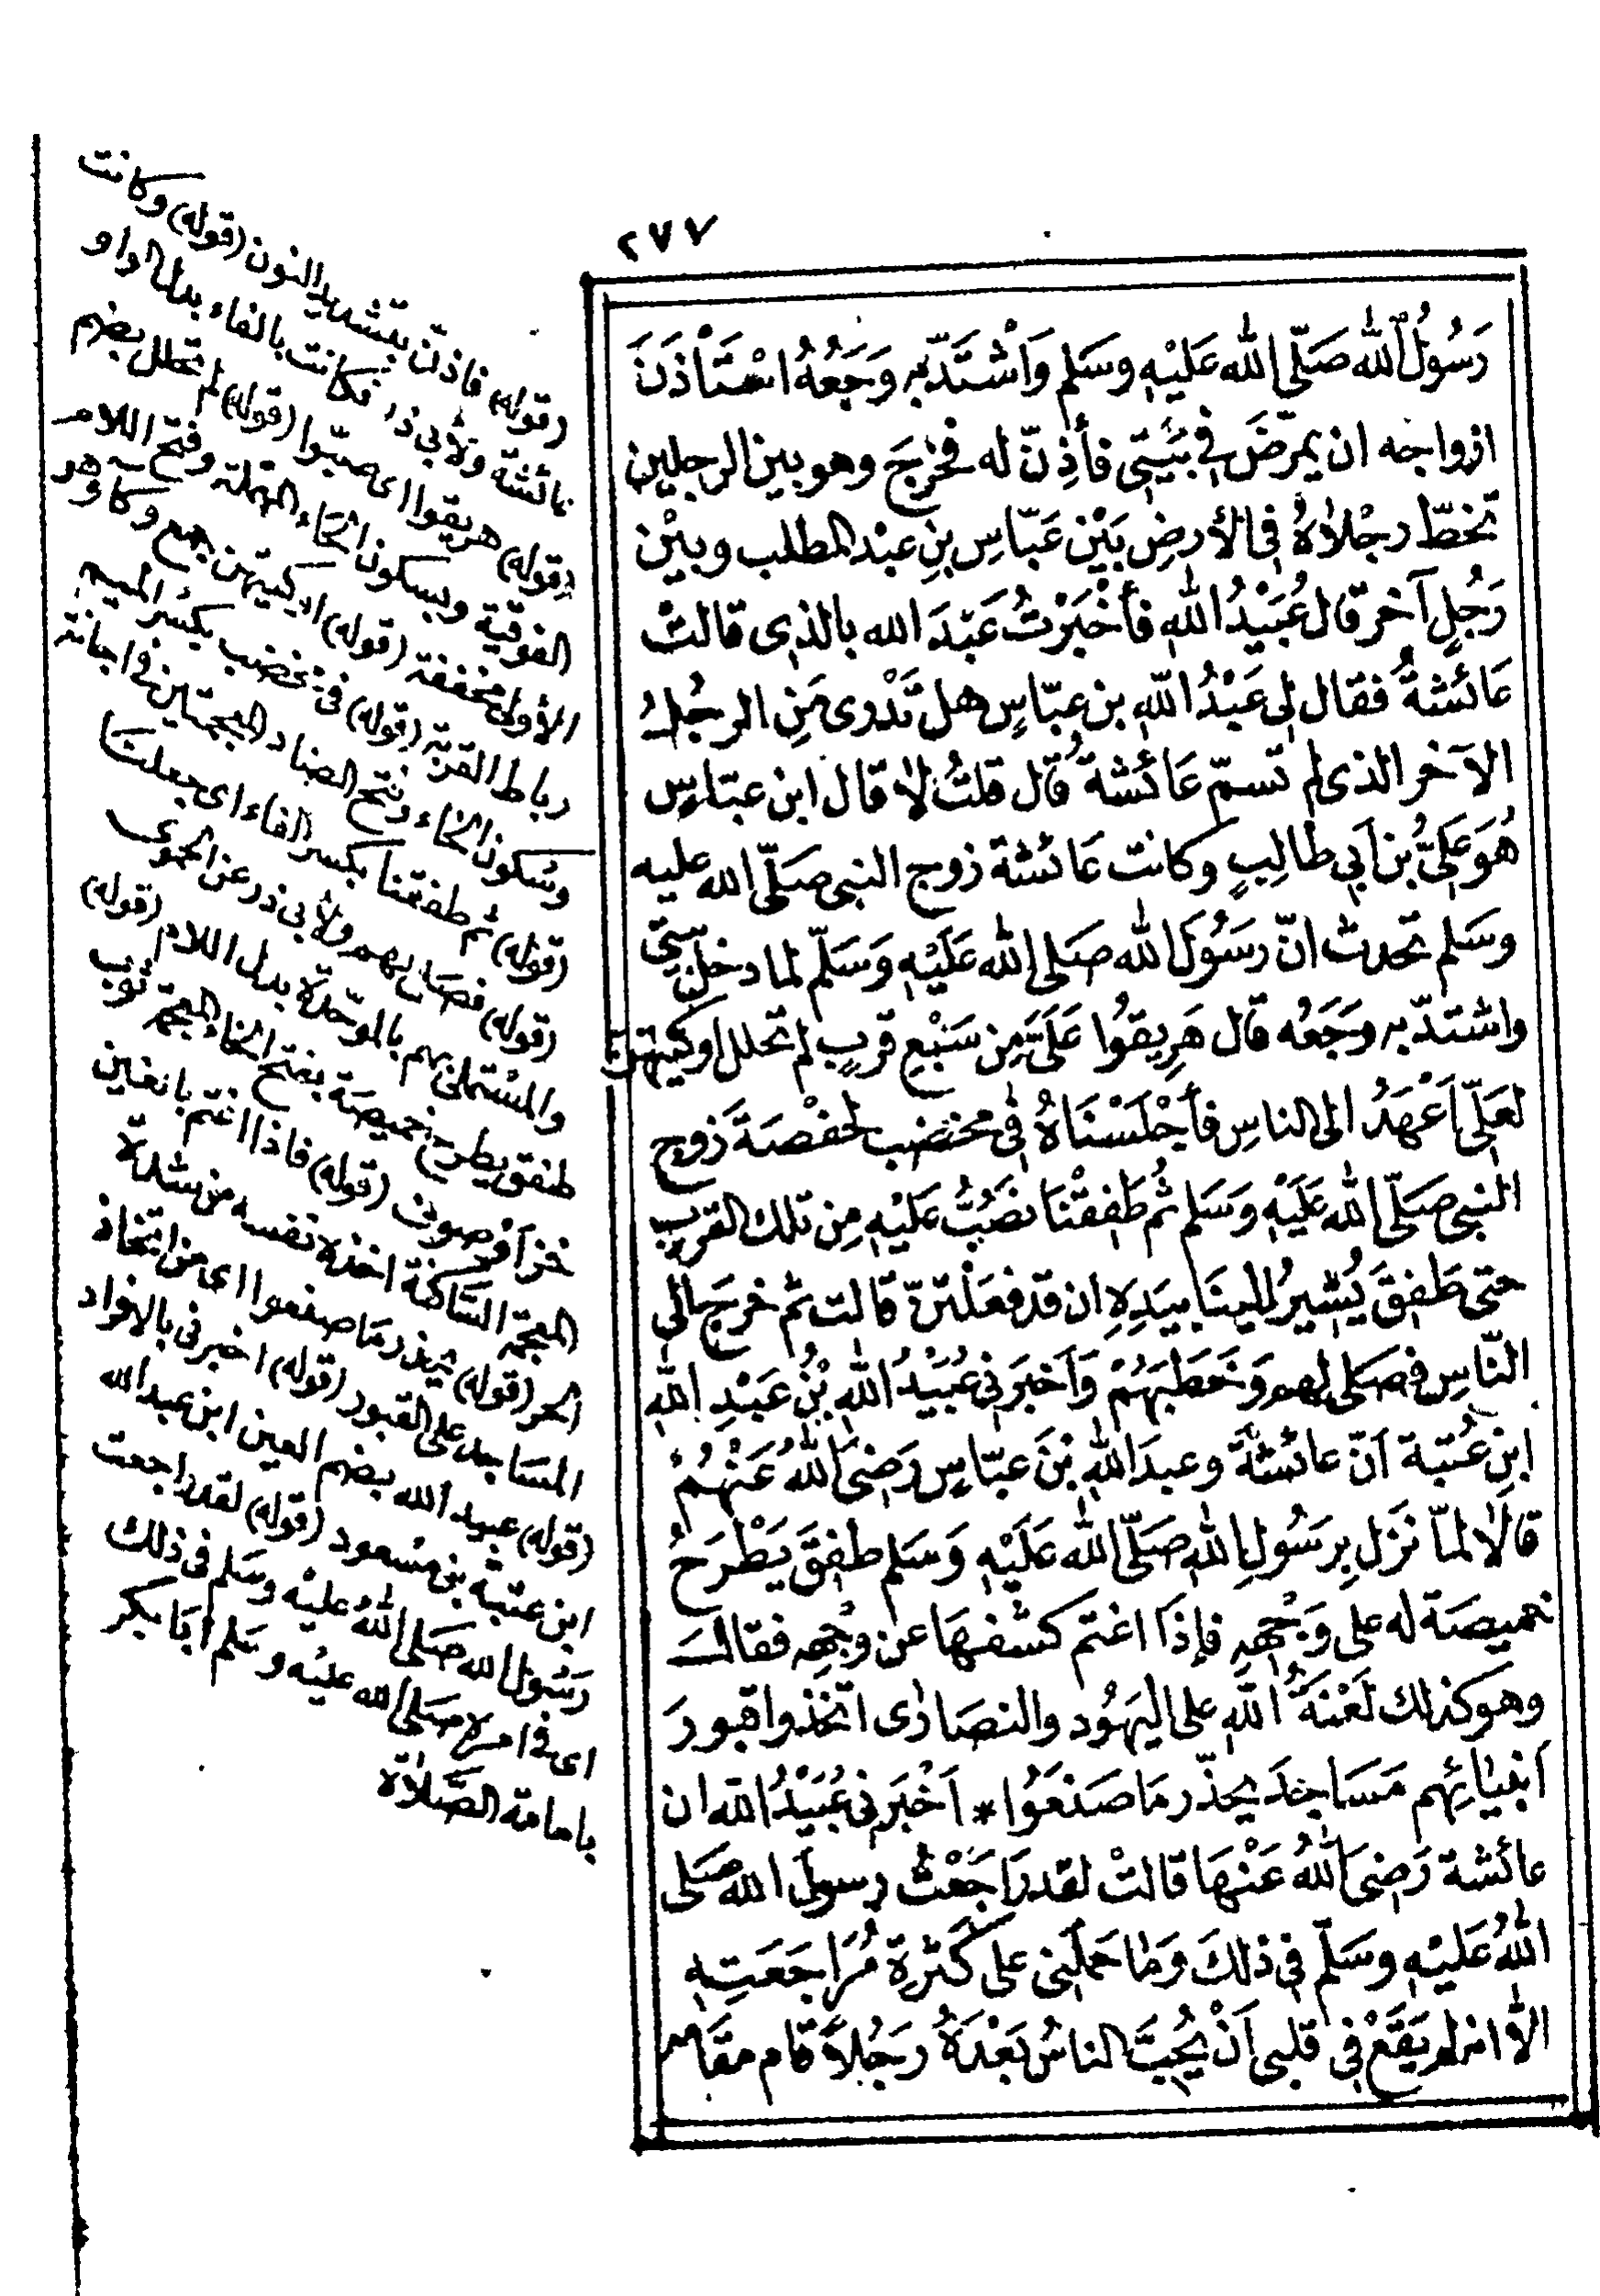 ٢٧٧
رَسُولُ اللّٰه صَلّى اللّٰه عَلَيْهِ وسَلم وَاشْتَدّ بِهِ وَجَعُهُ اسْتَأْذَنَ
ازواجه ان يمرّضَ فِي بَيْتِي فأذِنّ له فخرَجَ وهو بين الرجلين
تخطّ رجْلَاهُ فى الأرضِ بَيْن عَبّاسِ بنِ عبْد المطلب وبيْن
رَجُلٍ آخر قال عُبَيْدُ اللهِ فأخْبَرْتُ عَبْدَ الله بالذى قالتْ
عَائشةُ فقال لِي عَبْدُ اللهِ بن عبّاسٍ هل تَدْرى مَنِ الرجُلُ
الآخر الذى لم تسمّ عَائشةُ قال قلتُ لا قال ابن عبّاسٍ
هُوَ عَلِيُّ بن أبِي طالِبٍ وكانت عَائشة زوج النبى صَلّى الله عليه
وسَلم تحدث انّ رسُولَ اللّٰه صَلى اللّٰه عَلَيْهِ وَسَلّم لما دخل بَيْتِي
واشتدّ به وجَعُه قال هَرِيقُوا عَلَيَّ مِن سَبْعِ قرَبٍ لم تحلل اوكيتهن
لعَلّي أعْهَدُ الى الناسِ فأجْلَسْنَاهُ فى مخضب لحَفْصَةَ زوج
النبى صَلّى اللّٰه عَلَيْهِ وَسَلم ثُم طَفِقْنَا نصُبُّ عَلَيْهِ مِن تلك القربِ
حتى طَفِقَ يُشيرُ الينَا بيَدِهِ ان قد فعَلْتنّ قالت ثم خرجَ الى
النّاسِ فصَلى لهم وَخَطبَهُمْ وَأخبَرَنى عُبَيْدُ اللهِ بْنُ عَبْدِ اللهِ
ابنِ عُتبة أنّ عائشةَ وعبدَ اللهِ بْنَ عبّاسٍ رَضِىَ اللّٰهُ عَنْهُمْ
قالا لمّا نزل بِرسُولِ اللّٰهِ صَلّى اللّٰه عَلَيْهِ وَسَلم طفِقَ يَطْرَحُ
خميصَة له على وَجْههِ فإذَا اغتم كشفهَا عن وجْهِه فقالَ
وهوَ كذلك لَعْنَةُ اللهِ على اليهُود والنصَارٰى اتخذوا قبورَ
أنبيَائِهم مَسَاجدَ يحذّر مَا صَنَعُوا * أخْبَرنى عُبَيْدُ الله ان
عائشة رَضِىَ اللّٰهُ عَنْهَا قالتْ لقد رَاجَعْتُ رسولَ الله صَلى
اللّٰهُ عَليْهِ وسَلّم فى ذلكَ وَمَا حَملَنِى على كَثْرةِ مُرَاجَعَتِهِ
الّا انه لم يَقَعْ فِى قلبى أنْ يُحِبَّ الناسُ بَعْدَهُ رَجُلاً قام مقَامه
(قوله) فاذنّ بتشديد النون (قوله) وكانت
عائشة ولأبى ذر فكانت بالفاء بدل الواو
(قوله) هريقوا اى صبّوا (قوله) لم تحلل بضم
الفوقية وبسكون الحَاء المهملة وفتح اللام
الأولى مخففة (قوله) اوكيتهن جمع وكاء وهو
رباط القربة (قوله) فى مخضب بكسْر الميم
وسُكون الخاء وفتح الضاد المعجمتين فى اجانة
(قوله) ثم طفقنا بكسر الفاء اى جعلنَا
(قوله) فصَلى بهم ولأبى ذر عن الحموى
والمسْتملى بهم بالموحّدة بدل اللام (قوله)
طفق يطرح خميصَة بفتح الخاء المعجمة ثوب
خز أو صوف (قوله) فاذا اغتم بالغين
المعجمة السّاكنة اخذه نفسه من شدة
الحر (قوله) يحذر مَا صنعوا اى من اتخاذ
المسَاجد على القبور (قوله) اخبرنى بالافراد
(قوله) عبيد الله بضم العين ابن عبد الله
ابن عتبة بن مسْعود (قوله) لقد راجعت
رسُول الله صَلى اللهُ عليْه وسَلم فى ذلك
اى فى امره صَلى الله عليْه وسَلم أبَا بكر
بامامة الصَّلاة